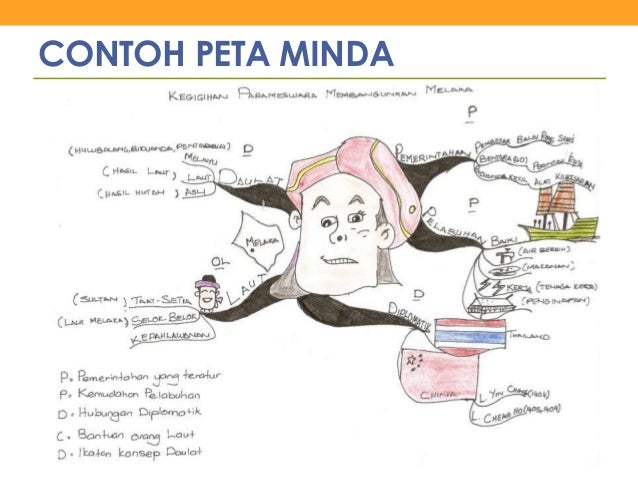 CONTOH PETA MINDA
KEGIGIHAN PARAMESWARA MEMBANGUNKAN MELAKA
P
PEMERINTAHAN
PEMBESAR BALAI
BENTARA
KECIL ALAT KEBESARAN
P
PELABUHAN
BAIKI
(AIR BERSIH)
(MAKANAN)
KERJA (TENAGA KERJA)
(PENGINAPAN)
D
DIPLOMATIK
THAILAND
CHINA
L. YIN CHING (1404)
L. CHENG HO (1405, 1409)
OL
LAUT
(SULTAN) TAAT-SETIA
(LALU MELAKA) SELOK-BELOK
KEPAHLAWANAN
D
DAULAT
(HULUBALANG, BIDUANDA, PENTADBIR)
MELAYU
(HASIL LAUT) LAUT
(HASIL HUTAN) ASLI
MELAKA
P = Pemerintahan yang teratur
P = Kemudahan Pelabuhan
D = Hubungan Diplomatik
C = Bantuan orang Laut
D = Ikatan konsep Daulat